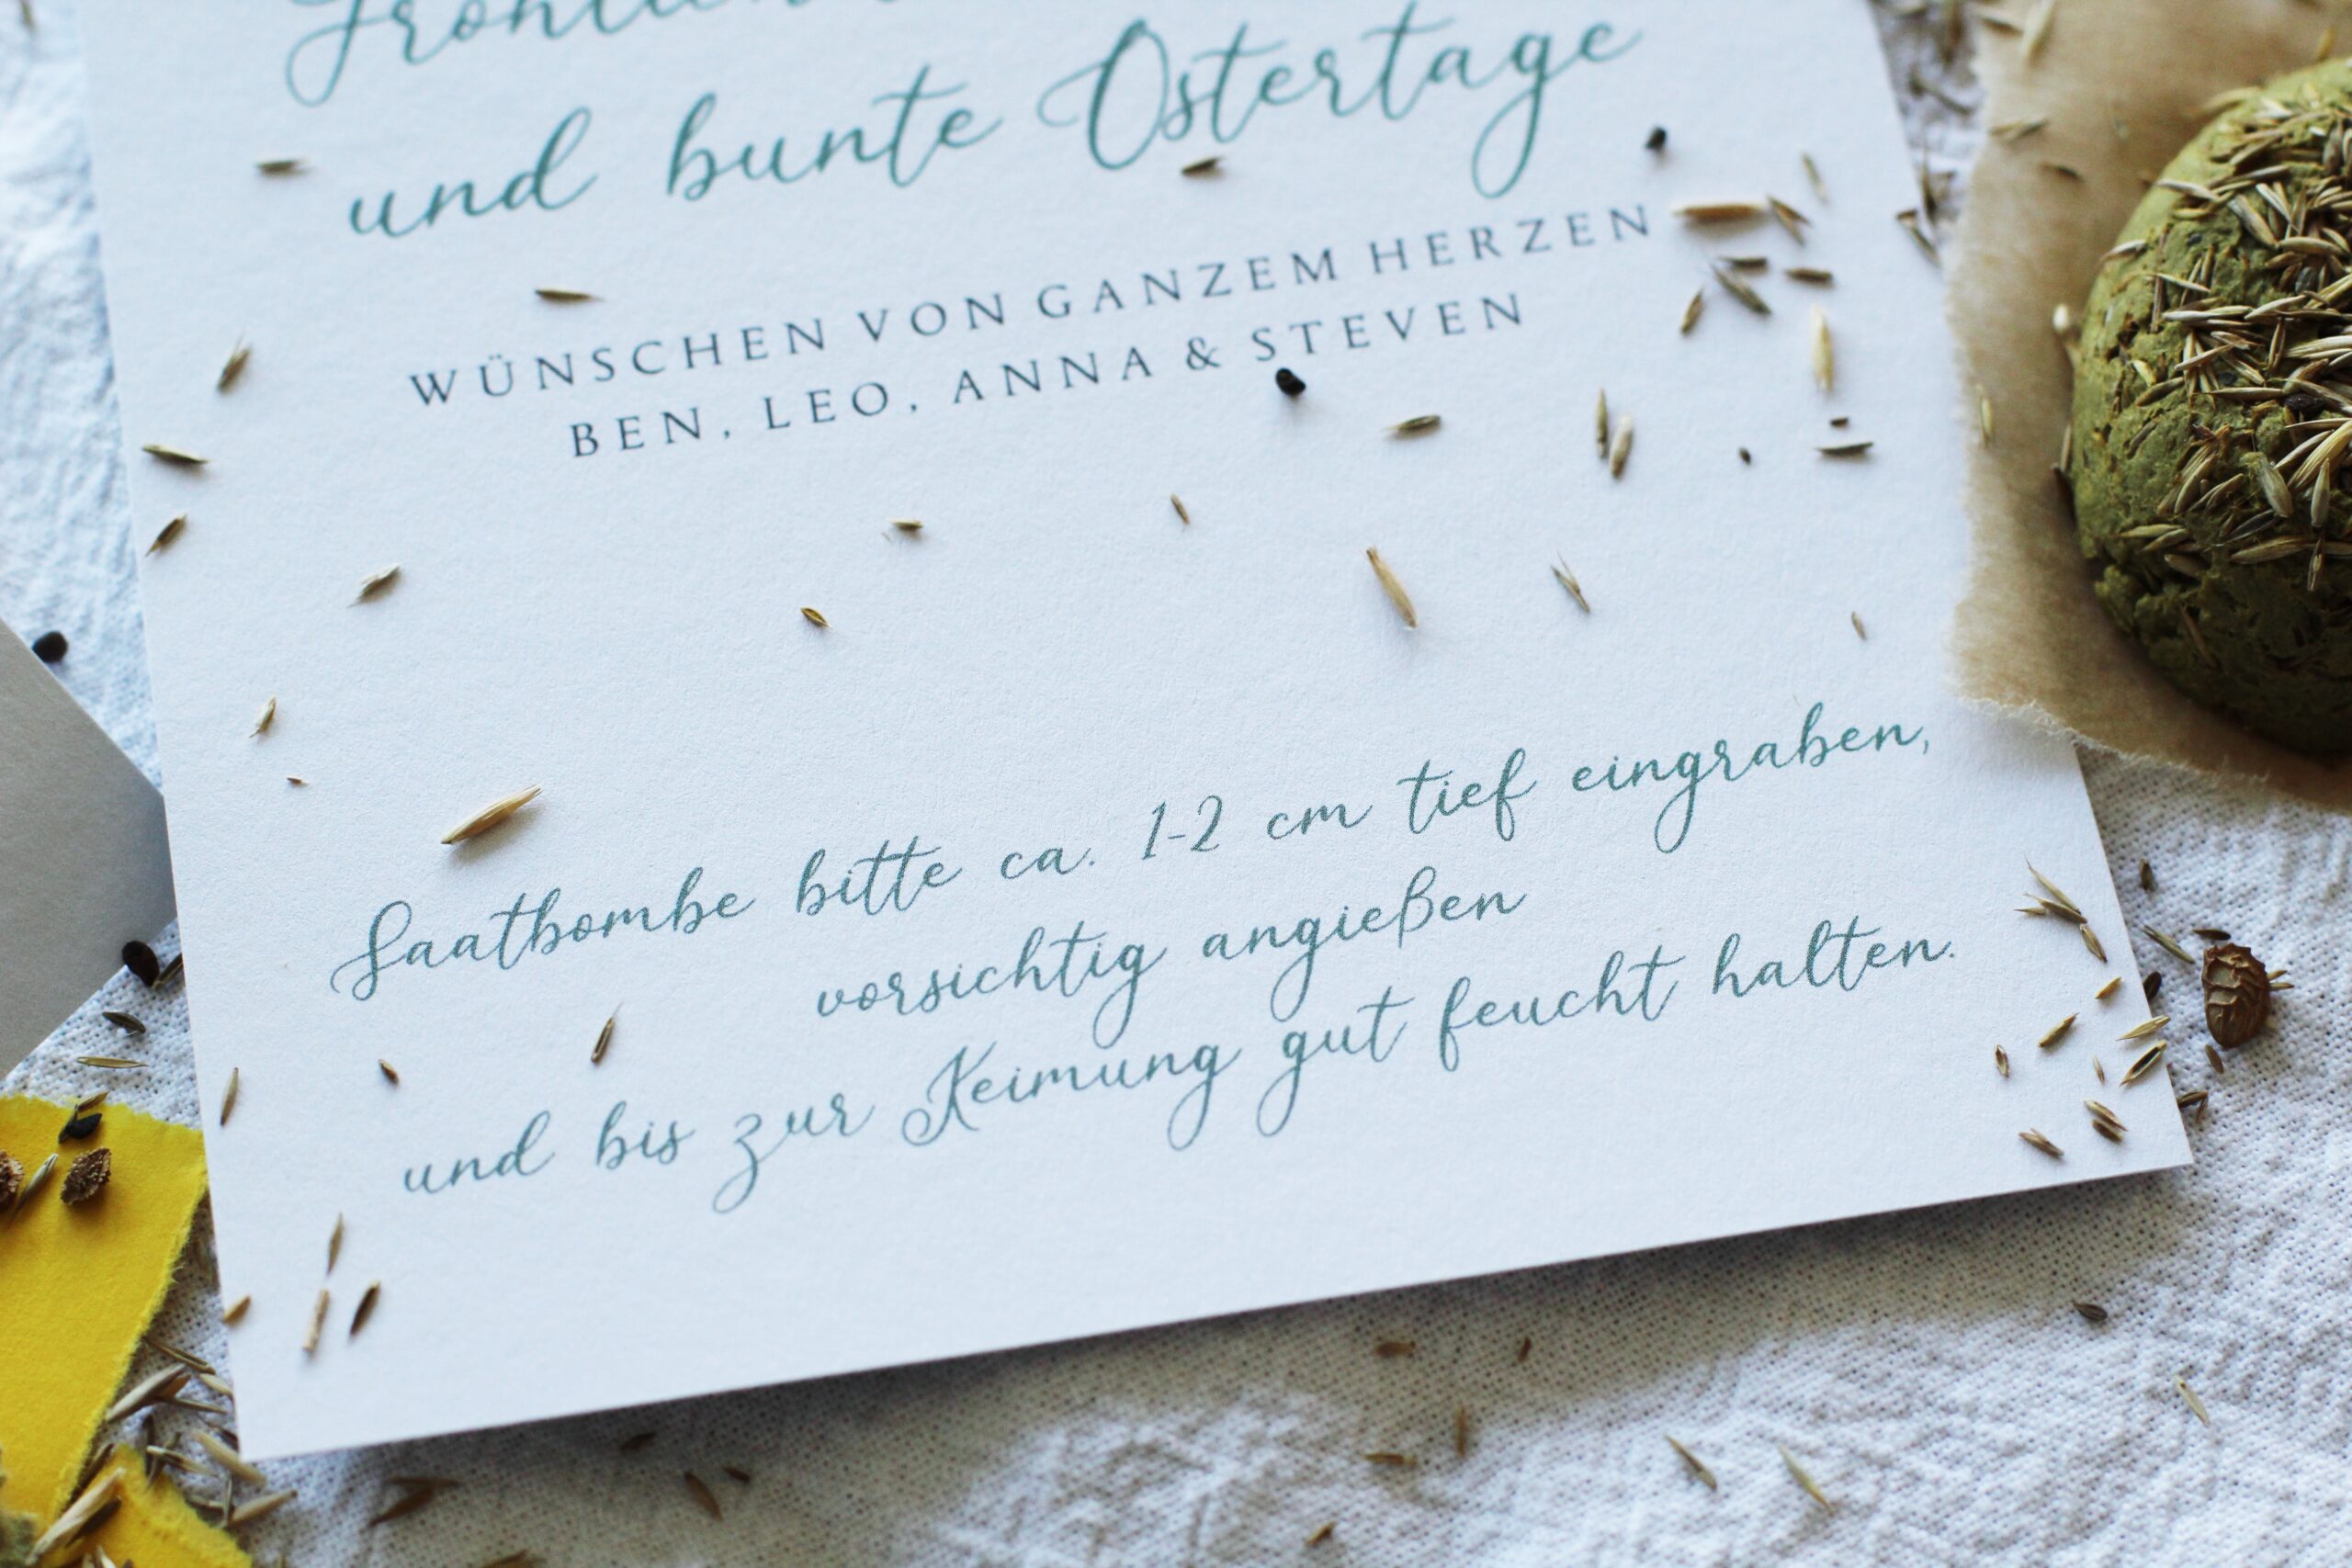 und bunte Ostertage
WÜNSCHEN VON GANZEM HERZEN
BEN, LEO, ANNA & STEVEN
Saatbombe bitte ca. 1-2 cm tief eingraben,
vorsichtig angießen
und bis zur Keimung gut feucht halten.